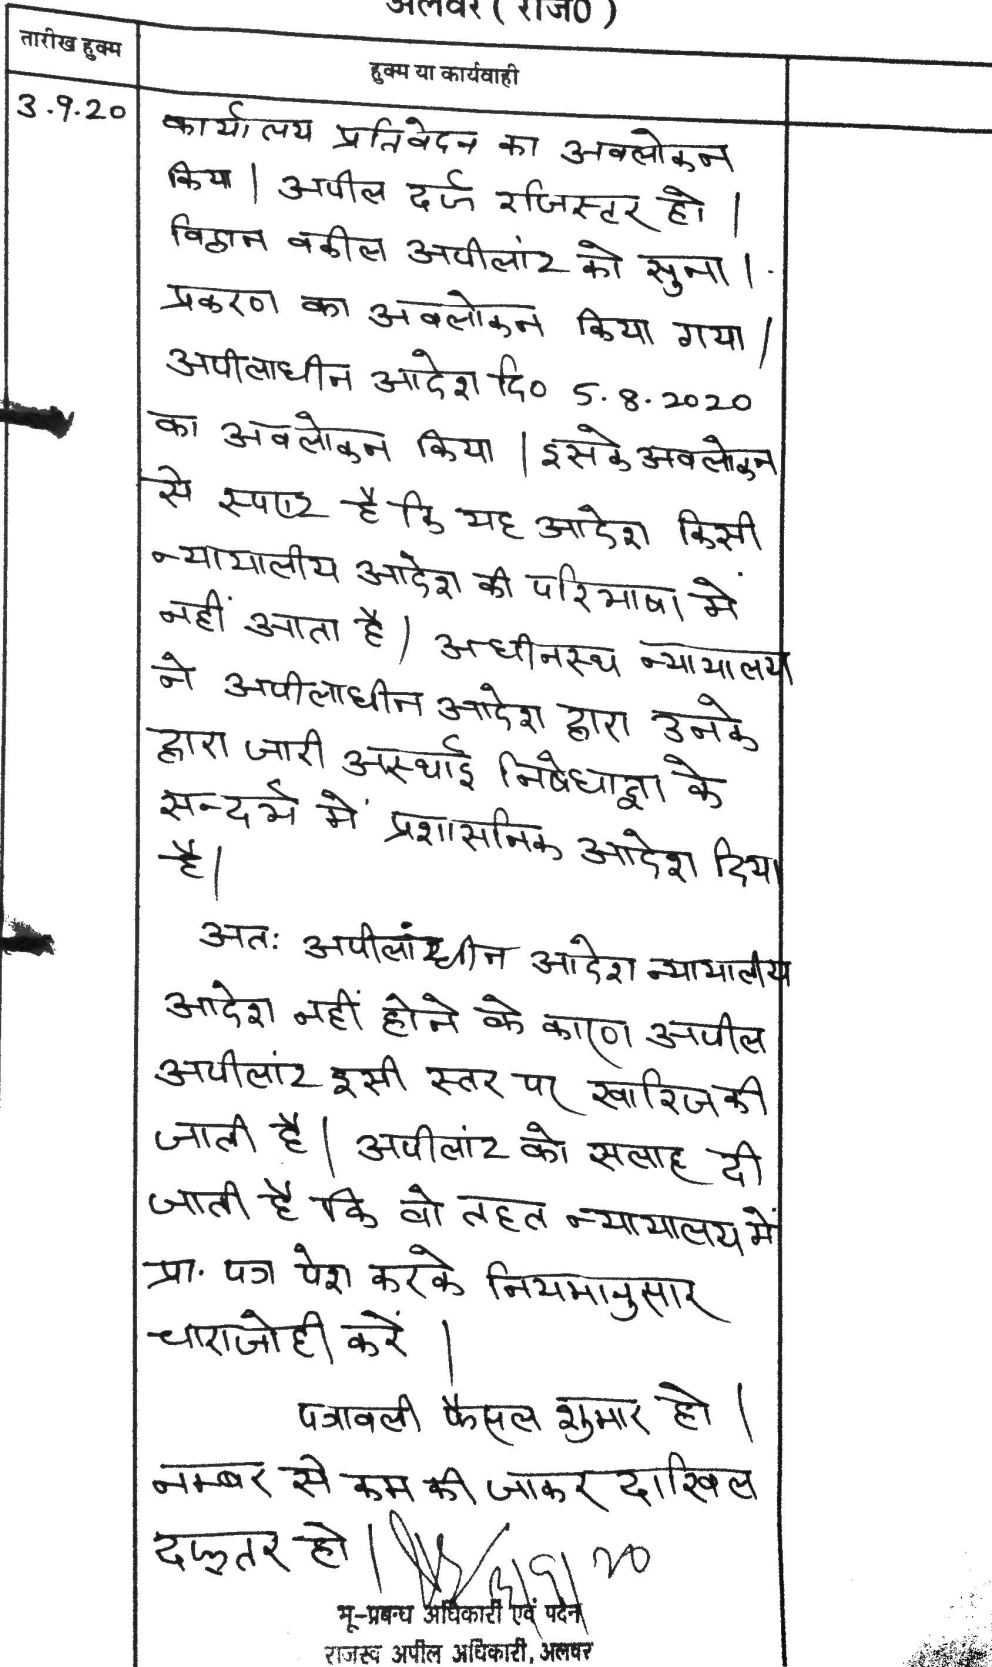 अलवर ( राज0 )
तारीख हुक्म
हुक्म या कार्यवाही
3.9.20
कार्यालय प्रतिवेदन का अवलोकन
किया | अपील दर्ज रजिस्टर हो |
विद्वान वकील अपीलांट को सुना |
प्रकरण का अवलोकन किया गया |
अपीलाधीन आदेश दि० 5.8.2020
का अवलोकन किया | इसके अवलोकन
से स्पष्ट है कि यह आदेश किसी
न्यायालीय आदेश की परिभाषा में
नहीं आता है | अधीनस्थ न्यायालय
ने अपीलाधीन आदेश द्वारा उनके
द्वारा जारी अस्थाई निषेधाज्ञा के
सन्दर्भ में प्रशासनिक आदेश दिया
है |
अतः अपीलांधीन आदेश न्यायालीय
आदेश नहीं होने के कारण अपील
अपीलांट इसी स्तर पर खारिज की
जाती है | अपीलांट को सलाह दी
जाती है कि वो तहत न्यायालय में
प्रा. पत्र पेश करके नियमानुसार
चाराजोही करें |
पत्रावली फैसल शुमार हो |
नम्बर से कम की जाकर दाखिल
दफ्तर हो |
भू-प्रबन्ध अधिकारी एवं पदेन
राजस्व अपील अधिकारी, अलवर